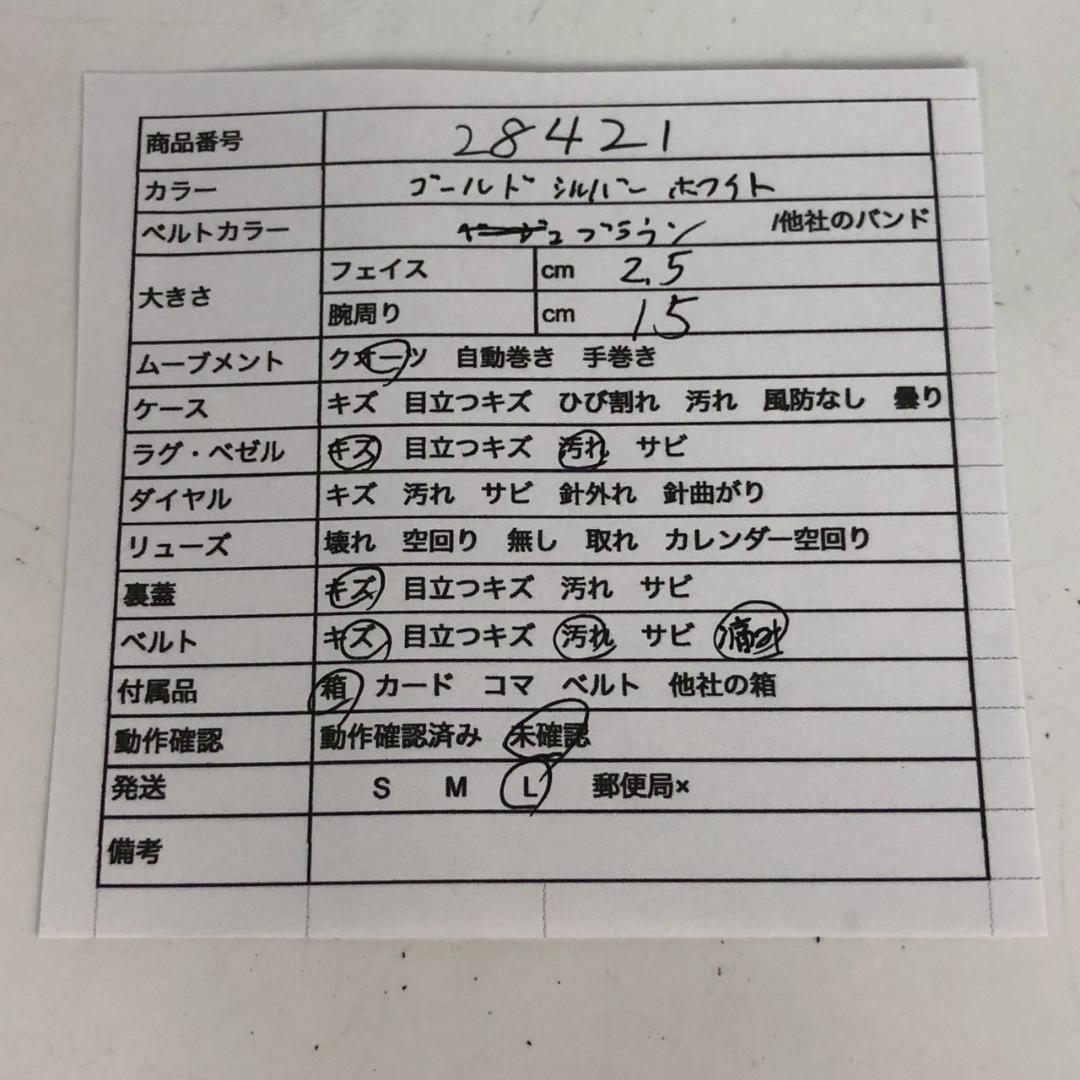 商品番号 28421
カラー ゴールド シルバー ホワイト
ベルトカラー ブラウン /他社のバンド
大きさ フェイス cm 2.5
腕周り cm 15
ムーブメント クオーツ 自動巻き 手巻き
ケース キズ 目立つキズ ひび割れ 汚れ 風防なし 曇り
ラグ・ベゼル キズ 目立つキズ 汚れ サビ
ダイヤル キズ 汚れ サビ 針外れ 針曲がり
リューズ 壊れ 空回り 無し 取れ カレンダー空回り
裏蓋 キズ 目立つキズ 汚れ サビ
ベルト キズ 目立つキズ 汚れ サビ
付属品 箱 カード コマ ベルト 他社の箱
動作確認 動作確認済み 未確認
発送 S M L 郵便局×
備考